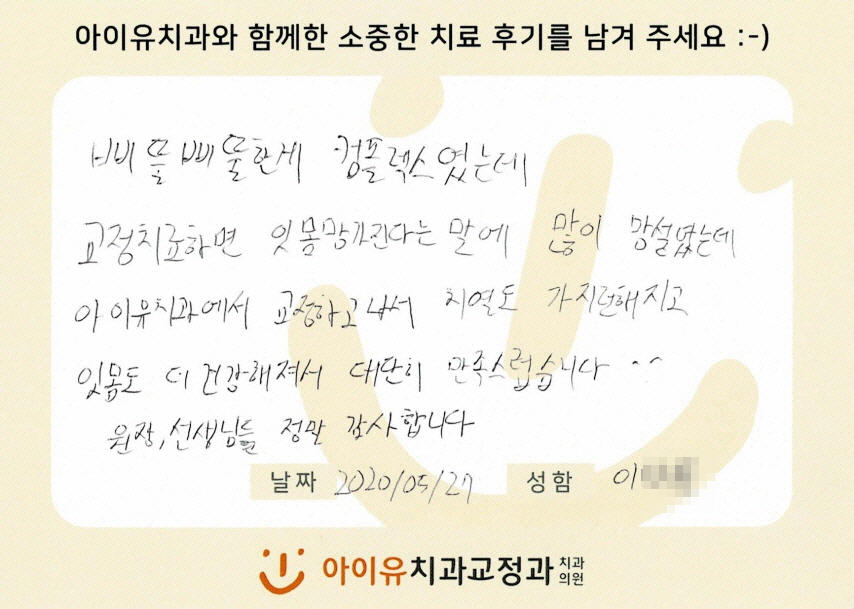 아이유치과와 함께한 소중한 치료 후기를 남겨 주세요 :-)
삐뚤삐뚤한게 컴플렉스였는데
교정치료하면 잇몸망가진다는 말에 많이 망설였는데
아이유치과에서 교정하고나서 치열도 가지런해지고
잇몸도 더 건강해져서 대단히 만족스럽습니다 ^^
원장,선생님들 정말 감사합니다
날짜 2020/05/27 성함 이
아이유치과교정과 치과의원